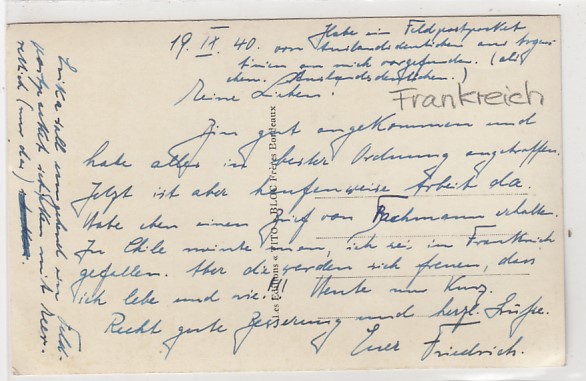 19. IX. 40.
Habe ein Feldpostpacket
von Auslandsdeutschen aus Argen-
tinien an mich vorgefunden. (als
chem. Auslandsdeutschen.)
Frankreich
Meine Lieben!
Bin gut angekommen und
habe alles in bester Ordnung angetroffen.
Jetzt ist aber haufenweise Arbeit da.
Habe eben einen Brief von Bachmann erhalten.
In Chile meinte man, ich sei in Frankreich
gefallen. Aber die werden sich freuen, dass
ich lebe und wie!!! Heute nur kurz.
Recht gute Besserung und herzl. Grüße.
Euer Friedrich.
Erika soll umgehend ein Feld-
postpacket schicken mit
rettich (nur das)
Les Editions « TITO » BLOC Frères Bordeaux